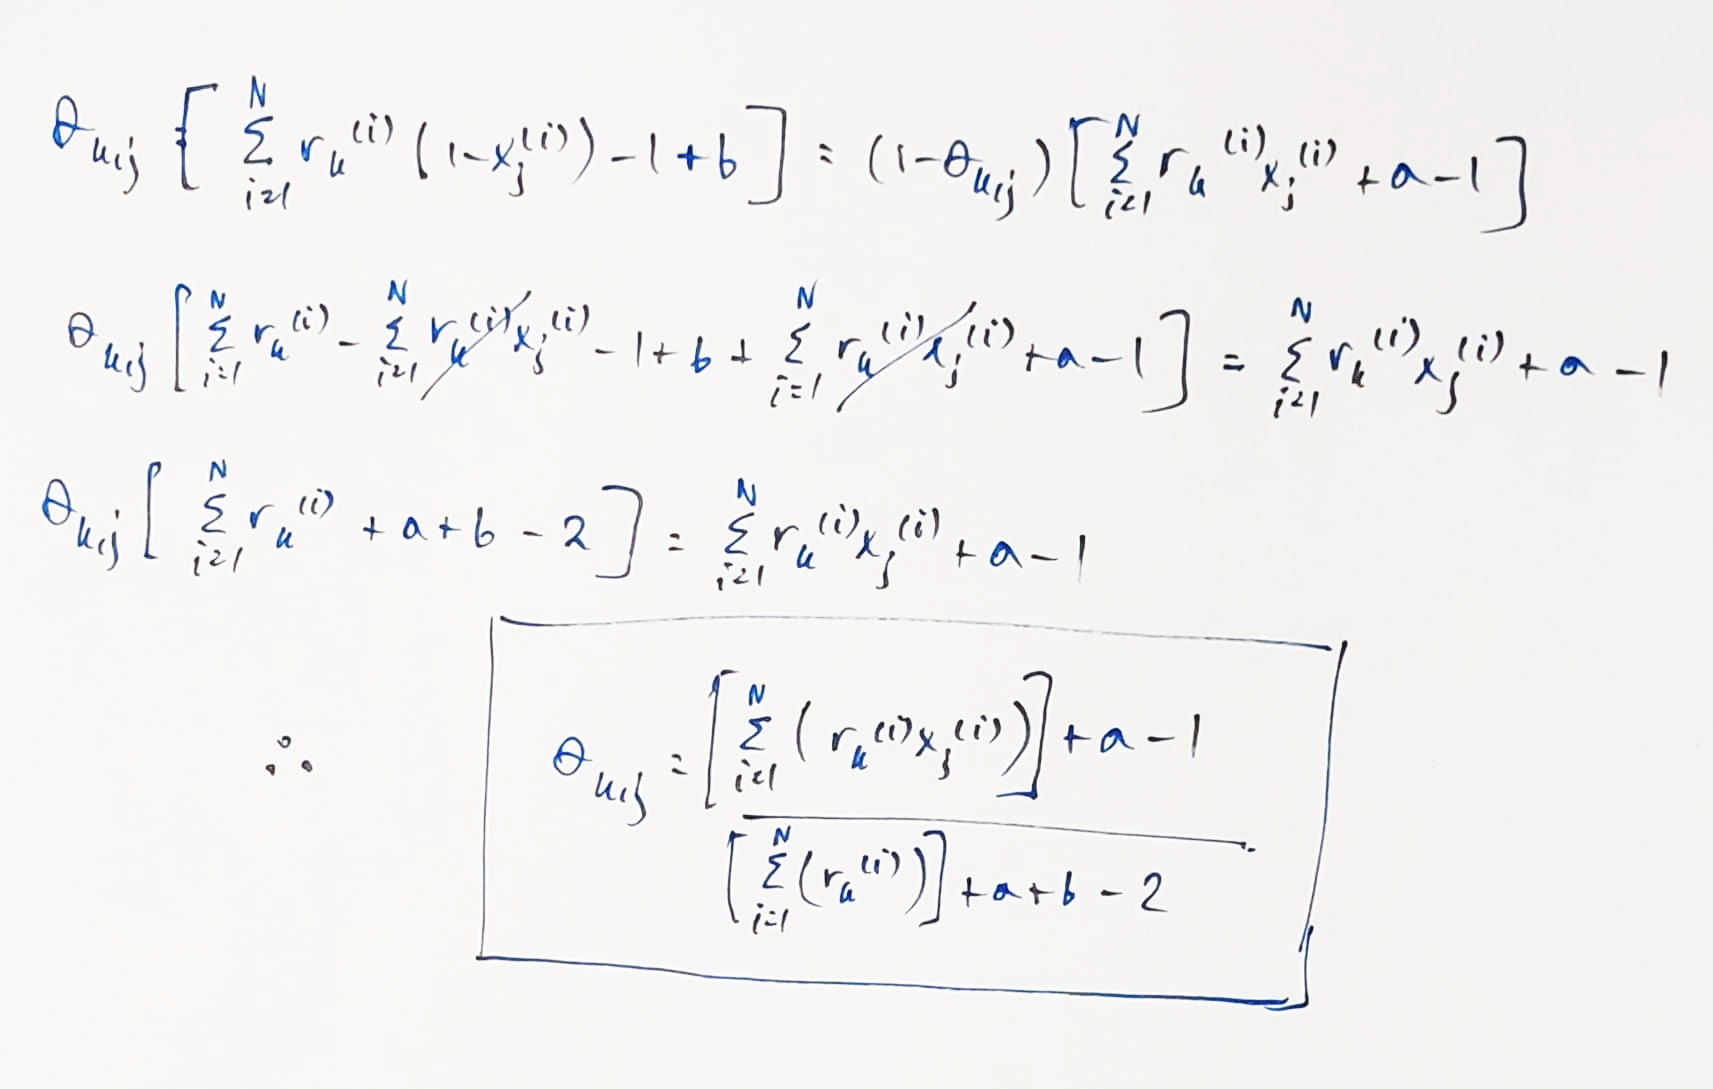 θ_{k,j} [ Σ_{i=1}^{N} r_k^{(i)} (1-x_j^{(i)}) -1 + b ] = (1-θ_{k,j}) [ Σ_{i=1}^{N} r_k^{(i)} x_j^{(i)} + a - 1 ]
θ_{k,j} [ Σ_{i=1}^{N} r_k^{(i)} - Σ_{i=1}^{N} r_k^{(i)} x_j^{(i)} - 1 + b + Σ_{i=1}^{N} r_k^{(i)} x_j^{(i)} + a - 1 ] = Σ_{i=1}^{N} r_k^{(i)} x_j^{(i)} + a - 1
θ_{k,j} [ Σ_{i=1}^{N} r_k^{(i)} + a + b - 2 ] = Σ_{i=1}^{N} r_k^{(i)} x_j^{(i)} + a - 1
∴ θ_{k,j} = [ Σ_{i=1}^{N} ( r_k^{(i)} x_j^{(i)} ) ] + a - 1
[ Σ_{i=1}^{N} ( r_k^{(i)} ) ] + a + b - 2